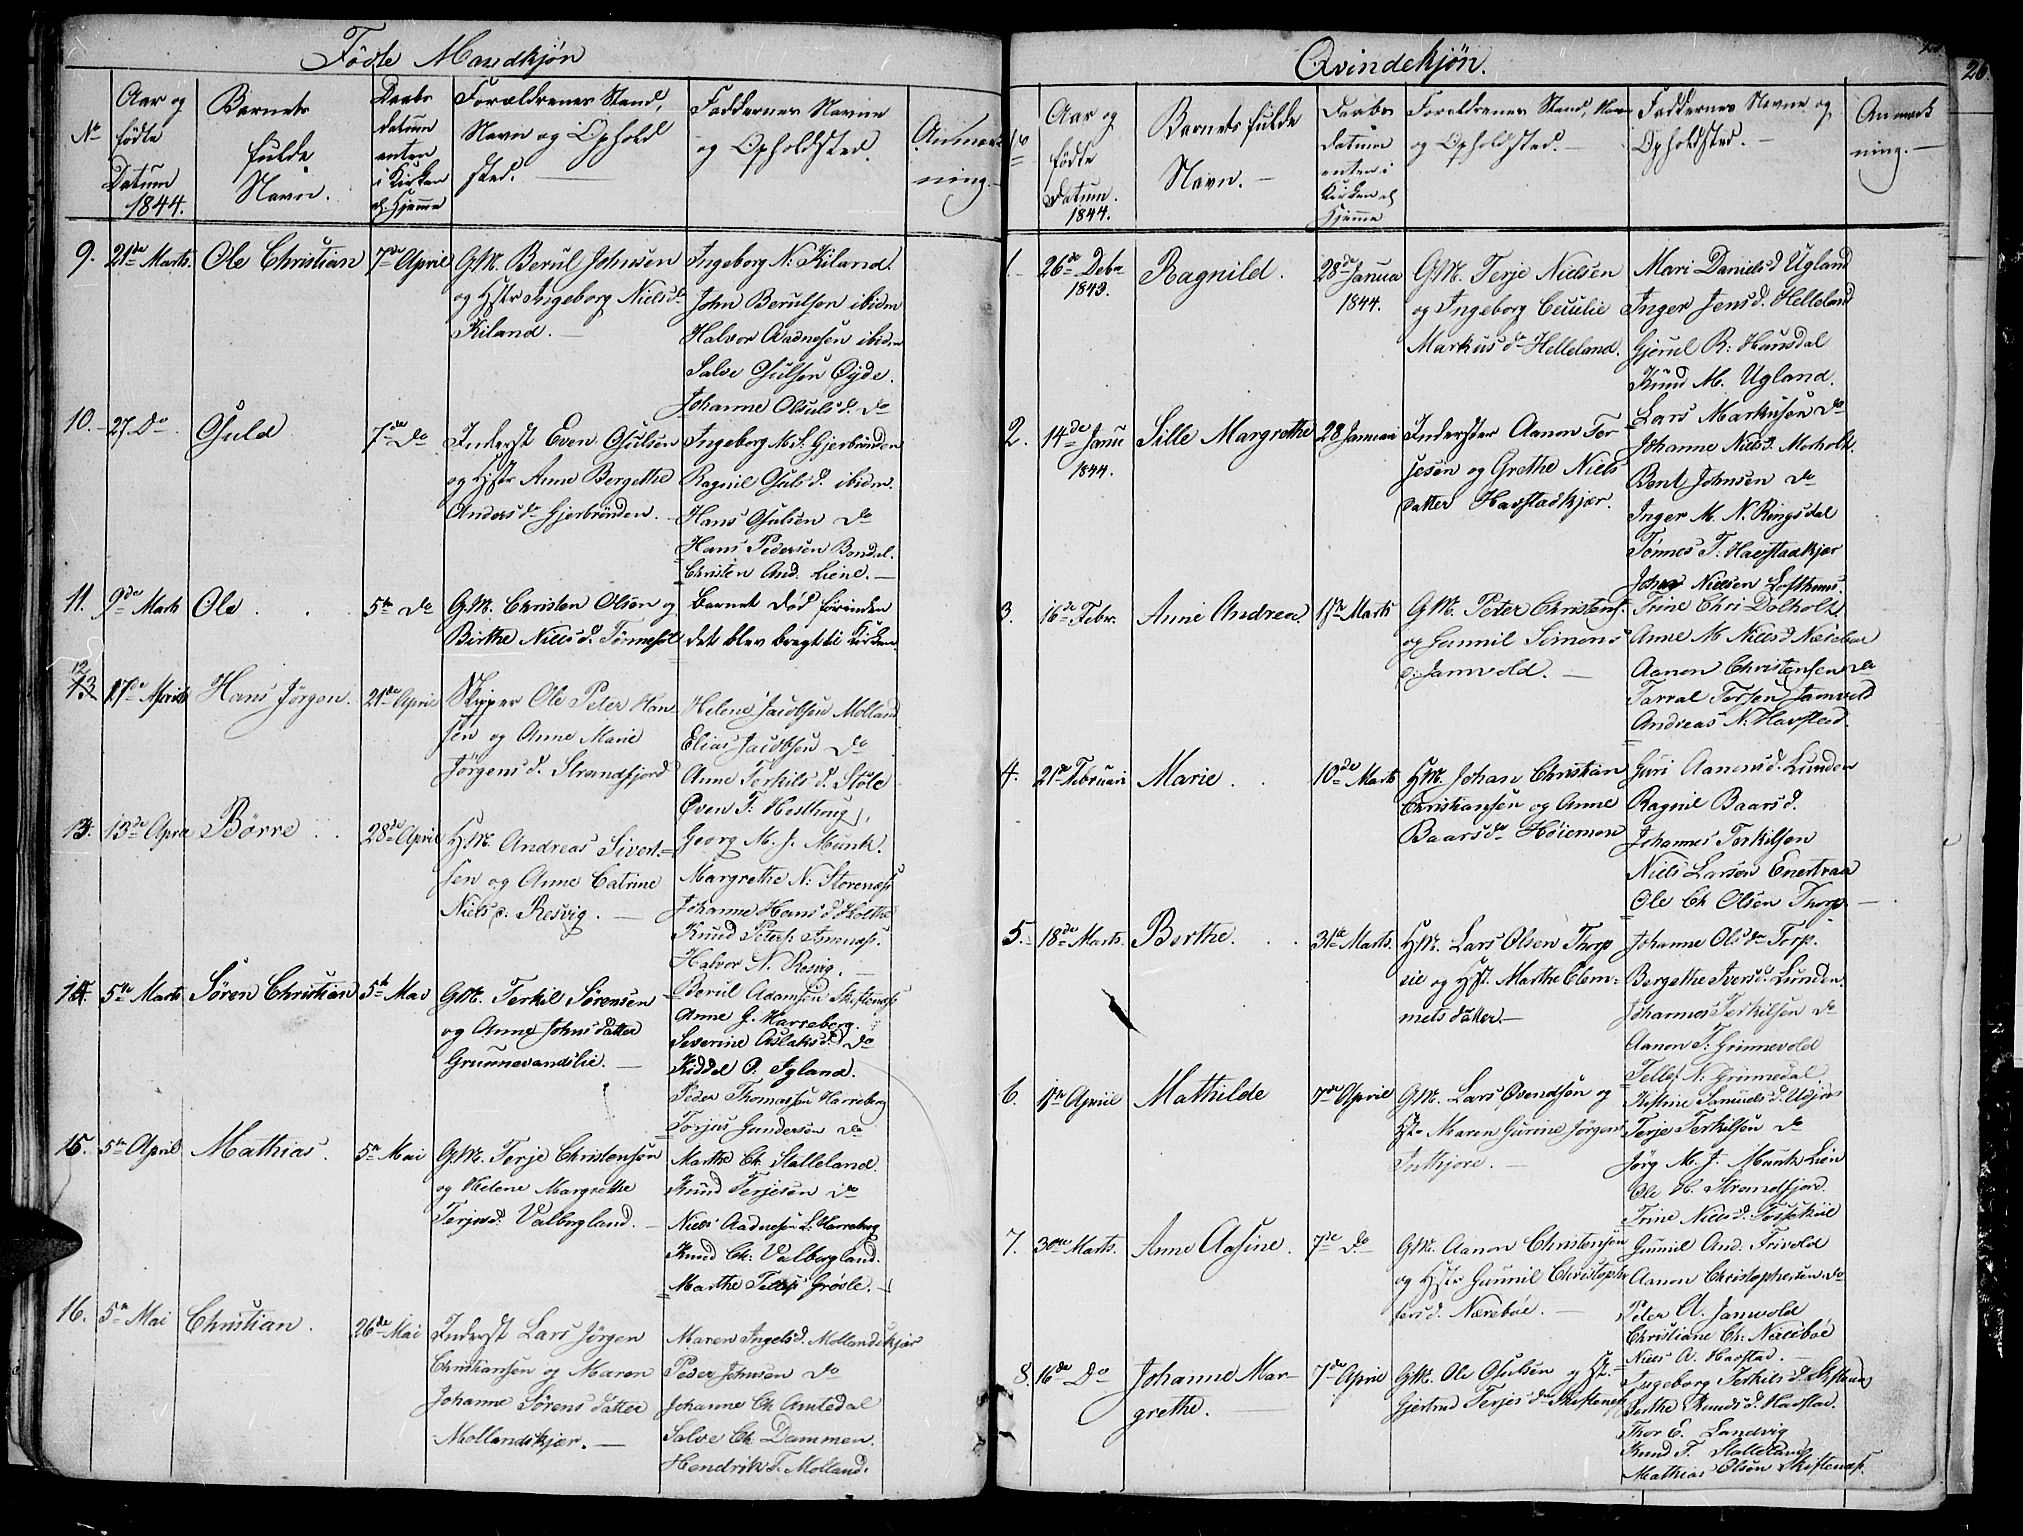 Födte Mandkjön
No
Aar og födte Datum 1844.
Barnets fulde Navn.
Daabs datum enten i Kirken el. Hjemme
Forældrenes Stand, Navn og Ophold sted.
Faddernes Navne og Opholdsted.
Anmærkning.
9. 21de Marts. Ole Christian 7de April
GM. Berul Johnsen
og Hstr Ingeborg Nielsdr
Kiland.
Ingeborg N: Kiland.
John Berulsen ibidm
Halvor Aadnesen ibidm
Salve Osulsen Øÿde.
Johanne Olsulsd. do
10. 27. Do Osuld 7de Do
Inderst Even Osulsen
og Hstr Anne Bergethe
Andersdr Gjerbrönden.
Ingeborg M. Gjerbrönden
Ragnil Osulsd. ibidm.
Hans Osulsen do
Hans Pedersen Bondel.
Christen And. Liene.
11. 9de Marts Ole 5te Do
GM. Christen Olsen og
Birthe Nielsd. Tönnesöl
Barnet död förinden
det blev bragt til Kirken
12 13 17de April Hans Jörgen. 21de April
Skipper Ole Peter Han-
sen og Anne Marie
Jörgensd. Strandfjord
Helene Jacobsen Molland
Elias Jacobsen Do
Anne Terkilsd. Stöle
Even T: Hesthaug,
13. 13de April Börre 28de April
HM. Andreas Sivert-
sen og Anne Catrine
Nielsd. Resvig.
Georg M. J. Munk.
Margrethe N: Storenæs
Johanne Hansd Holthe
Knud Peters:
Halvor N. Resvig.
14. 5te Marts Sören Christian 5te Mai
GM. Terkil Sörensen
og Anne Johnsdatter
Grunnevandslie.
Berul Adamsen Skiftenæs
Anne G. Harreberg.
Severine Aslaksd. Do
Kiddel O: Igland.
Peder Thomassen Harreberg
Torjus Gundersen Do
15. 5te April Mathias. 5te Mai
GM. Terje Christensen
og Helene Margrethe
Terjesd. Valborgland.
Marthe Ch. Stalleland.
Knud Terjesen Do
Niels Aadnesen L. Harreberg
Knud Ch: Valborgland.
Marthe Tellefs Grödle.
16. 5te Mai Christian. 26de Mai
Inderst Lars Jörgen
Christiansen og Maren
Johanne Sörensdatter
Mollandskjær.
Maren Ingelsd. Mollandskjær
Peder Johnsen Do
Johanne Ch Amtedal
Salve Ch. Dammen.
Hendrik T. Molland.
Qvindekjön.
26.
No
Aar og födte Datum. 1844.
Barnets fulde Navn.
Daabs datum enten i Kirken el Hjemme
Forældrenes Stand, Navn og Opholdsted.
Faddernes Navne og Opholdsted.
Anmærkning.
1. 26de Debr 1843. Ragnild. 28de Janua 1844.
GM. Terje Nielsen
og Ingeborg Cecilie
Markusdr Helleland.
Mari Danielsd Ugland
Inger Jensd. Helleland
Gjerul R: Hansdal
Knud M. Ugland.
Lars Markusen do
2. 14de Janu 1844. Sille Margrethe 28 Januari
Inderster Aanon Ter-
jesen og Grethe Niels
datter Havstadkjær.
Johanne Nielsd. Morholt.
Bent Johnsen do
Inger M. N. Ringsdal
Tönnes T. Havstadkjær
John Nielsen Lofthuus.
3. 16de Febr. Anne Andrea 17de Marts
GM. Peter Christens.
og Gunnil Simons
d. Jamvold.
Trine Chri Dolholt
Anne M Nielsd Næreboe
Aanon Christensen do
Tarral Torsen Jamvold
Andreas N. Havstad.
4. 21de Februari Marie 10de Marts
HM. Johan Christian
Christiansen og Anne
Baarsdr Höiemon
Guri Aanonsd. Lunden
Ragnil Baarsd.
Johannes Terkilsen
Niels Larsen Enertraa
Ole Ch Olsen Thorp
5. 18de Marts. Berthe. 31te Marts.
HM. Lars Olsen Thorp
eie og Hst. Marthe Clem-
metsdatter.
Johanne Olsdr Torp.
Bergethe Iversd. Lunden.
Johannes Terkilsen do
Aanon T. Grimevold
Tellef N. Grimedal
6. 1te April Mathilde 7de April
GM. Lars Evendsen og
Hstr Maren Gurine Jörgens
Intkjore.
Kistine Samuelsd. Usjors
Terje Terkilsen do
Jörg M. J. Munk Lien
Ole H. Strandfjord.
Trine Nielsd. Fosseköil
7. 30te Marts. Anne Aasine. 7de do
GM. Aanon Christensen
og Hstr Gunnil Christophe
fersd. Næreböe.
Gunnil And. Trivold
Aanon Christophersen do
Peter A. Jamvold
Christiane Ch. Næreböe
Niels A. Havstad.
8. 16de Do Johanne Mar-
grethe. 7de April
GM. Ole Osulsen og Hst.
Gjertrud Terjesdr Skiftenes
Ingeborg Terkilsd. Skiftenæs
Berthe Knudsd. Havstad.
Thor E. Landvig
Knud T. Stalleland
Mathias Olsen Skiftenæs.